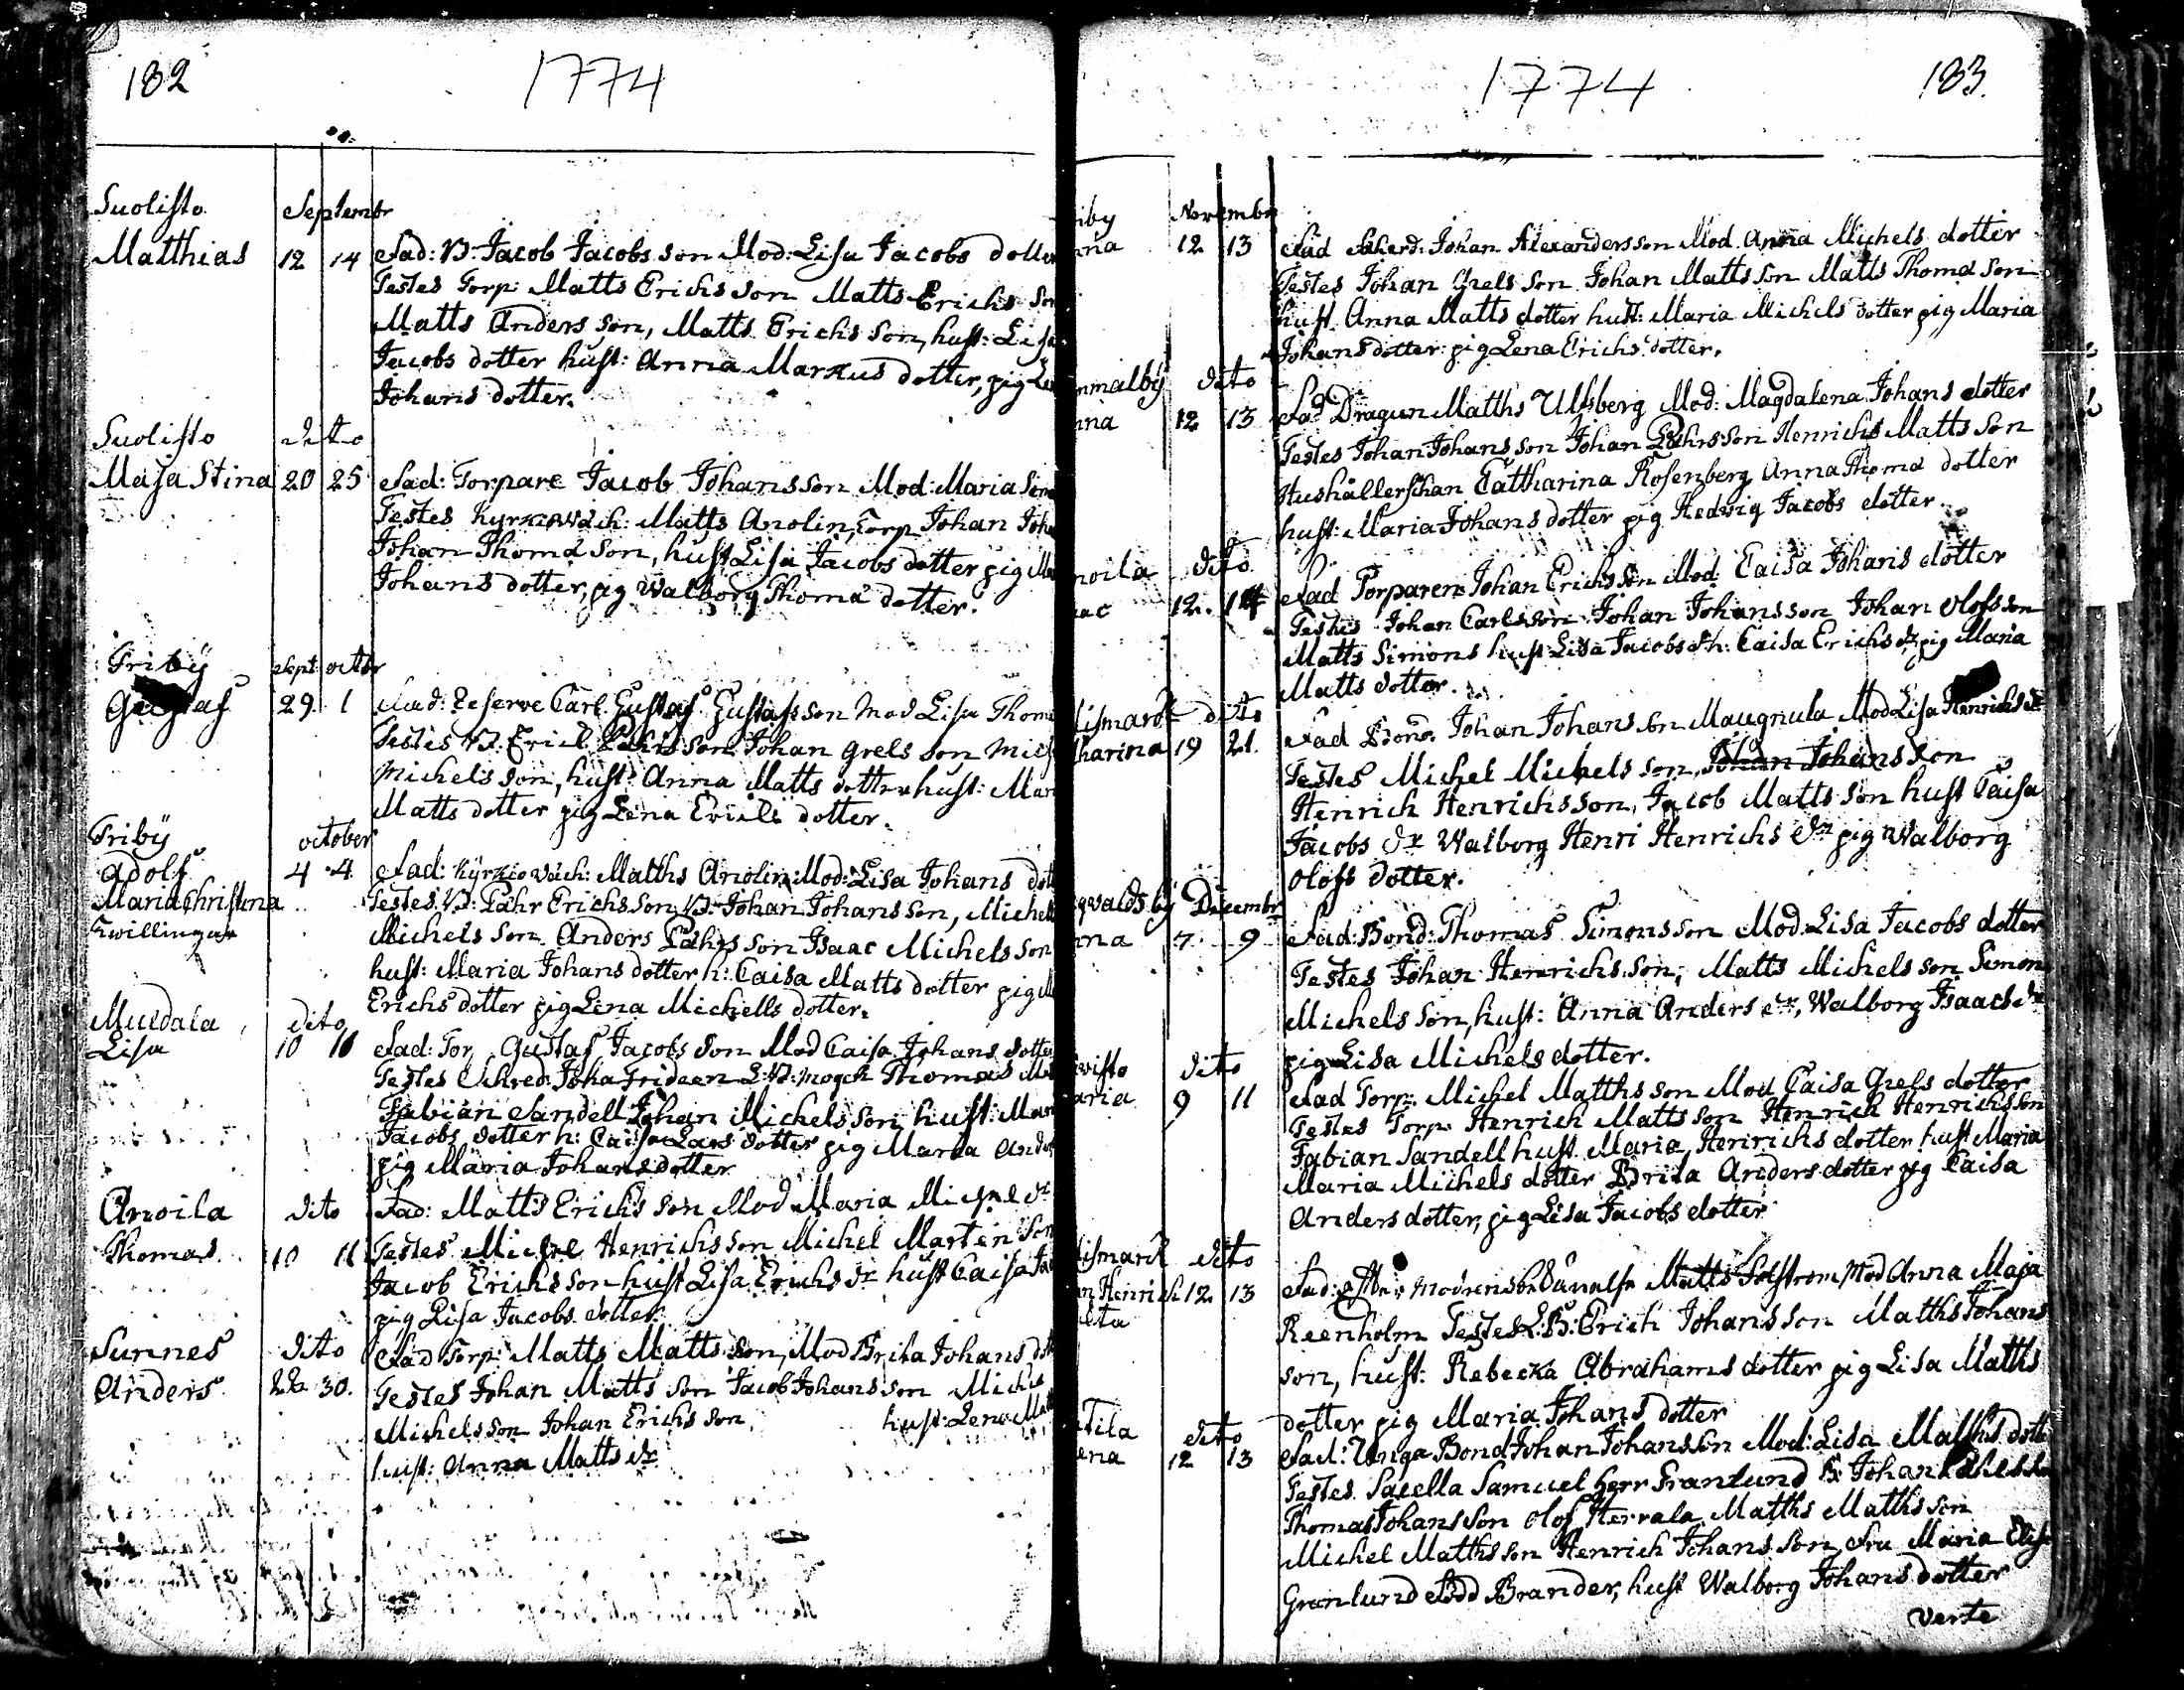 182
1774
Suolisto Septembr
Matthias 12 14 Fad: B: Jacob Jacobs son Mod: Lisa Jacobs dotter
Testes Torp: Matts Erichs son Matts Erichs son
Matts Anders son, Matts Erichs son, hust: Lisa
Jacobs dotter hust: Anna Markus dotter, pig Le
Johans dotter.
Suolisto dito
Maja Stina 20 25 Fad: Torpare Jacob Johans son Mod: Maria Sim
Testes Kyrkiowäch: Matts Anolin, Torp Johan Joha
Johan Thomæ son, hust Lisa Jacobs dotter pig Ma
Johans dotter, pig Walborg Thomæ dotter.
Friby Sept octbr
Gustaf 29. 1 Fad: Reserve Carl Gustaf Gustafs son Mod Lisa Thom
Testes B: Erich Påhls son Johan Grels son Mich
Michels son, hust: Anna Matts dotter hust: Mari
Matts dotter pig Lena Erichs dotter.
Friby october
Adolf 4 4 Fad: Kyrkiowäch: Matths Anolin Mod: Lisa Johans dott
Maria Christina Testes B: Påhr Erichs son, B: Johan Johans son, Michel
Twillingar Michels son Anders Påhrs son Isaac Michels son
hust: Maria Johans dotter h: Caisa Matts dotter pig M
Erichs dotter pig Lena Michells dotter.
Muldala dito
Lisa 10 10 Fad: Tor Gustaf Jacobs son Mod Caisa Johans dotter
Testes Schred: Joha Frideen L: B: Mogck Thomas M
Fabian Sandell Johan Michels son hust: Mar
Jacobs dotter h: Caisa Lars dotter pig Maria And
pig Maria Johans dotter
Anoila dito Fad: Matts Erichs son Mod Maria Michel dr
Thomas 10 11 Testes Michel Henrichs son Michel Marten son
Jacob Erichs son hust Lisa Erichs dr hust Caisa Ja
pig Lisa Jacobs dotter
Sunnes dito Fad Torp: Matts Matts son, Mod Brita Johans dt
Anders 28 30. Testes Johan Matts son Jacob Johans son Miche
Michels son Johan Erichs son hust: Lena Matt
hust: Anna Matts dr
1774
183.
iby Novembr
nna 12 13 Fad Schred: Johan Alexanders son Mod. Anna Michels dotter
Testes Johan Grels son Johan Matts son Matts Thomæ son
hust Anna Matts dotter hust: Maria Michels dotter pig Maria
Johans dotter pig Lena Erichs dotter.
mmalby dito
nna 12 13 Fad Dragun Matths Ulfsberg Mod: Magdalena Johans dotter
Testes Johan Johans son Johan Påhrs son Henrichs Matts son
Hushållerschan Catharina Rosenberg Anna Thomæ dotter
hust: Maria Johans dotter pig Hedwig Jacobs dotter
noila dito
aac 12. 14 Fad Torparen Johan Erichs son Mod: Caisa Johans dotter
Testes Johan Carlsson Johan Johans son Johan Olofs son
Matts Simons hust Lisa Jacobs dr h: Caisa Erichs dr pig Maria
Matts dotter.
lismark dito
tharina 19 21. Fad Bond. Johan Johans son Maugnula Mod Lisa Henrichs dr
Testes Michel Michels son, Johan Johans son
Henrich Henrichs son, Jacob Matts son hust Caisa
Jacobs dr Walborg Henri Henrichs dr pig Walborg
Olofs dotter.
gwaldsby Decembr
nna 7 9 Fad: Bond: Thomas Simons son Mod Lisa Jacobs dotter
Testes Johan Henrichs son, Matts Michels son Simon
Michels son, hust: Anna Anders dr, Walborg Isaacs dr
pig Lisa Michels dotter.
visto dito
aria 9 11 Fad Torp. Michel Matths son Mod Caisa Grels dotter
Testes Torp Henrich Matts son Henrich Henrichs son
Fabian Sandell hust Maria Henrichs dotter hust Maria
Maria Michels dotter Brita Anders dotter pig Caisa
Anders dotter, pig Lisa Jacobs dotter
lismark dito
n Henrich 12 13 Fad: Efter Modrens Matts Solstrom Mod Anna Maja
Reenholm Testes L: B: Erich Johans son Matths Johans
son, hust: Rebecka Abrahams dotter pig Lisa Matths
dotter pig Maria Johans dotter
tila dito
ena 12 13 Fad: Unga Bond Johan Johans son Mod: Lisa Matths dotte
Testes Sacella Samuel Herr Granlund B: Johan
Thomas Johans son Olof Herrala Matths Matths son
Michel Matths son Henrich Johans son Fru Maria Elis
Granlund född Brander, hust Walborg Johans dotter
verte